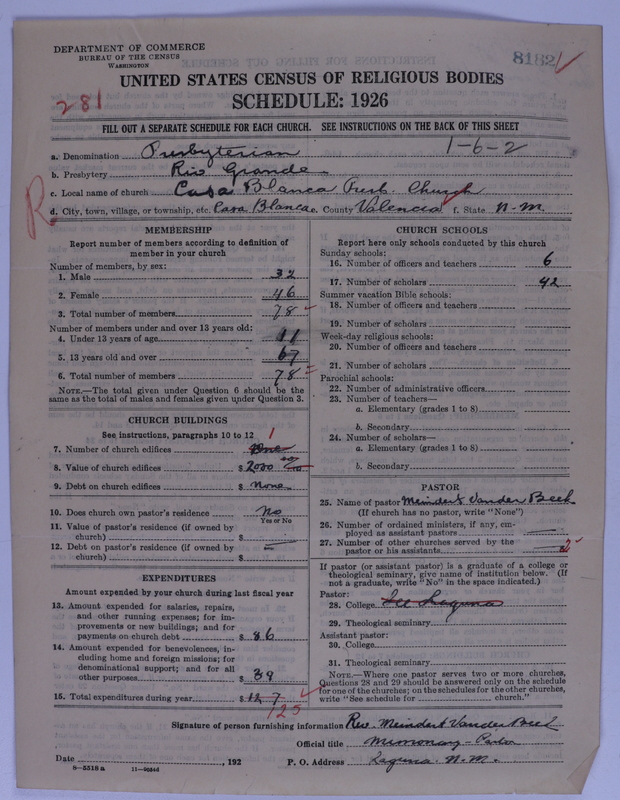 DEPARTMENT OF COMMERCE
BUREAU OF THE CENSUS
WASHINGTON
8182
UNITED STATES CENSUS OF RELIGIOUS BODIES
281
SCHEDULE: 1926
FILL OUT A SEPARATE SCHEDULE FOR EACH CHURCH. SEE INSTRUCTIONS ON THE BACK OF THIS SHEET
1-6-2
a. Denomination Presbyterian
b. Presbytery Rio Grande
c. Local name of church Casa Blanca Pres. Church
R
d. City, town, village, or township, etc. Casa Blanca e. County Valencia f. State N.M.
MEMBERSHIP
Report number of members according to definition of
member in your church
Number of members, by sex:
1. Male 32
2. Female 46
3. Total number of members 78
Number of members under and over 13 years old:
4. Under 13 years of age 11
5. 13 years old and over 67
6. Total number of members 78
NOTE.—The total given under Question 6 should be
same as the total of males and females given under Question 3.
CHURCH BUILDINGS
See instructions, paragraphs 10 to 12
1
7. Number of church edifices One
8. Value of church edifices $ 2000 00
9. Debt on church edifices $ None
10. Does church own pastor's residence? No
Yes or No
11. Value of pastor's residence (if owned by
church) $
12. Debt on pastor's residence (if owned by
church) $
EXPENDITURES
Amount expended by your church during last fiscal year
13. Amount expended for salaries, repairs,
and other running expenses; for im-
provements or new buildings; and for
payments on church debt $ 86
14. Amount expended for benevolences, in-
cluding home and foreign missions; for
denominational support; and for all
other purposes $ 39
15. Total expenditures during year $ 127
125
CHURCH SCHOOLS
Report here only schools conducted by this church
Sunday schools:
16. Number of officers and teachers 6
17. Number of scholars 42
Summer vacation Bible schools:
18. Number of officers and teachers
19. Number of scholars
Week-day religious schools:
20. Number of officers and teachers
21. Number of scholars
Parochial schools:
22. Number of administrative officers
23. Number of teachers—
a. Elementary (grades 1 to 8)
b. Secondary
24. Number of scholars—
a. Elementary (grades 1 to 8)
b. Secondary
PASTOR
25. Name of pastor Meindert Vander Beek
(If church has no pastor, write "None")
26. Number of ordained ministers, if any, em-
ployed as assistant pastors
27. Number of other churches served by the
pastor or his assistants 2
If pastor (or assistant pastor) is a graduate of a college or
theological seminary, give name of institution below. (If
not a graduate, write "No" in the space indicated.)
Pastor:
28. College See Laguna
29. Theological seminary
Assistant pastor:
30. College
31. Theological seminary
NOTE.—Where one pastor serves two or more churches,
Questions 28 and 29 should be answered only on the schedule
for one of the churches; on the schedules for the other churches,
write "See schedule for church."
Signature of person furnishing information Rev. Meindert Vander Beek
Official title Missionary-Pastor
Date , 192 P. O. Address Laguna N.M.
8—5518 a